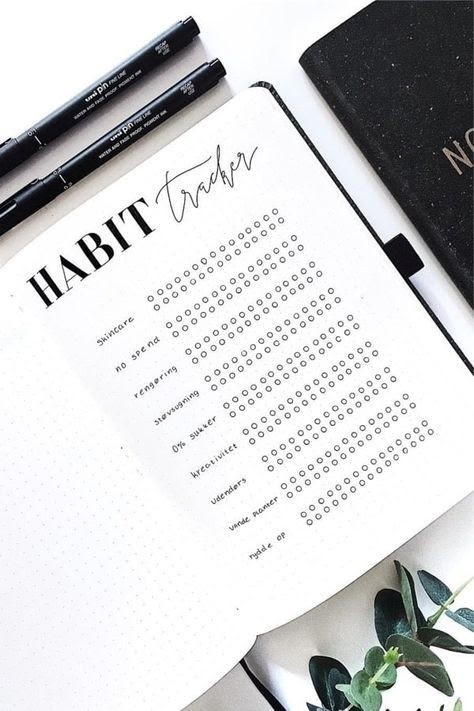 uni pin FINE LINE
WATER AND FADE PROOF, PIGMENT INK
uni pin FINE LINE
WATER AND FADE PROOF, PIGMENT INK
HABIT tracker
Skincare
no spend
rengøring
støvsugning
0% sukker
kreativitet
udendørs
vande planter
rydde op
NO